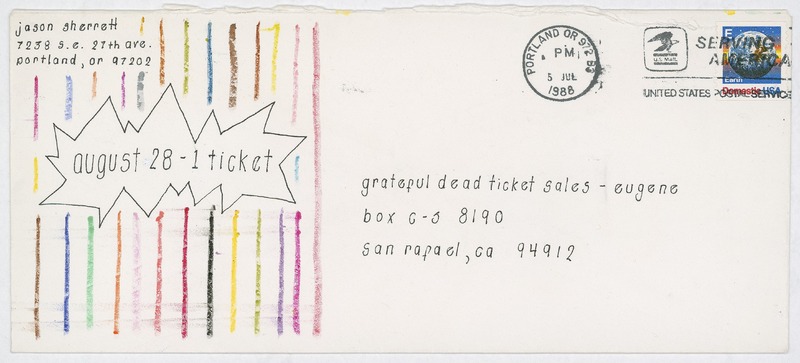 jason sherrett
7238 s.e. 27th ave.
portland, or 97202
august 28 - 1 ticket
PORTLAND OR 972
PM
5 JUL
1988
U.S. Mail
SERVING
AMERICA
UNITED STATES POSTAL SERVICE
E
Earth
Domestic USA
grateful dead ticket sales - eugene
box c-s 8190
san rafael, ca 94912